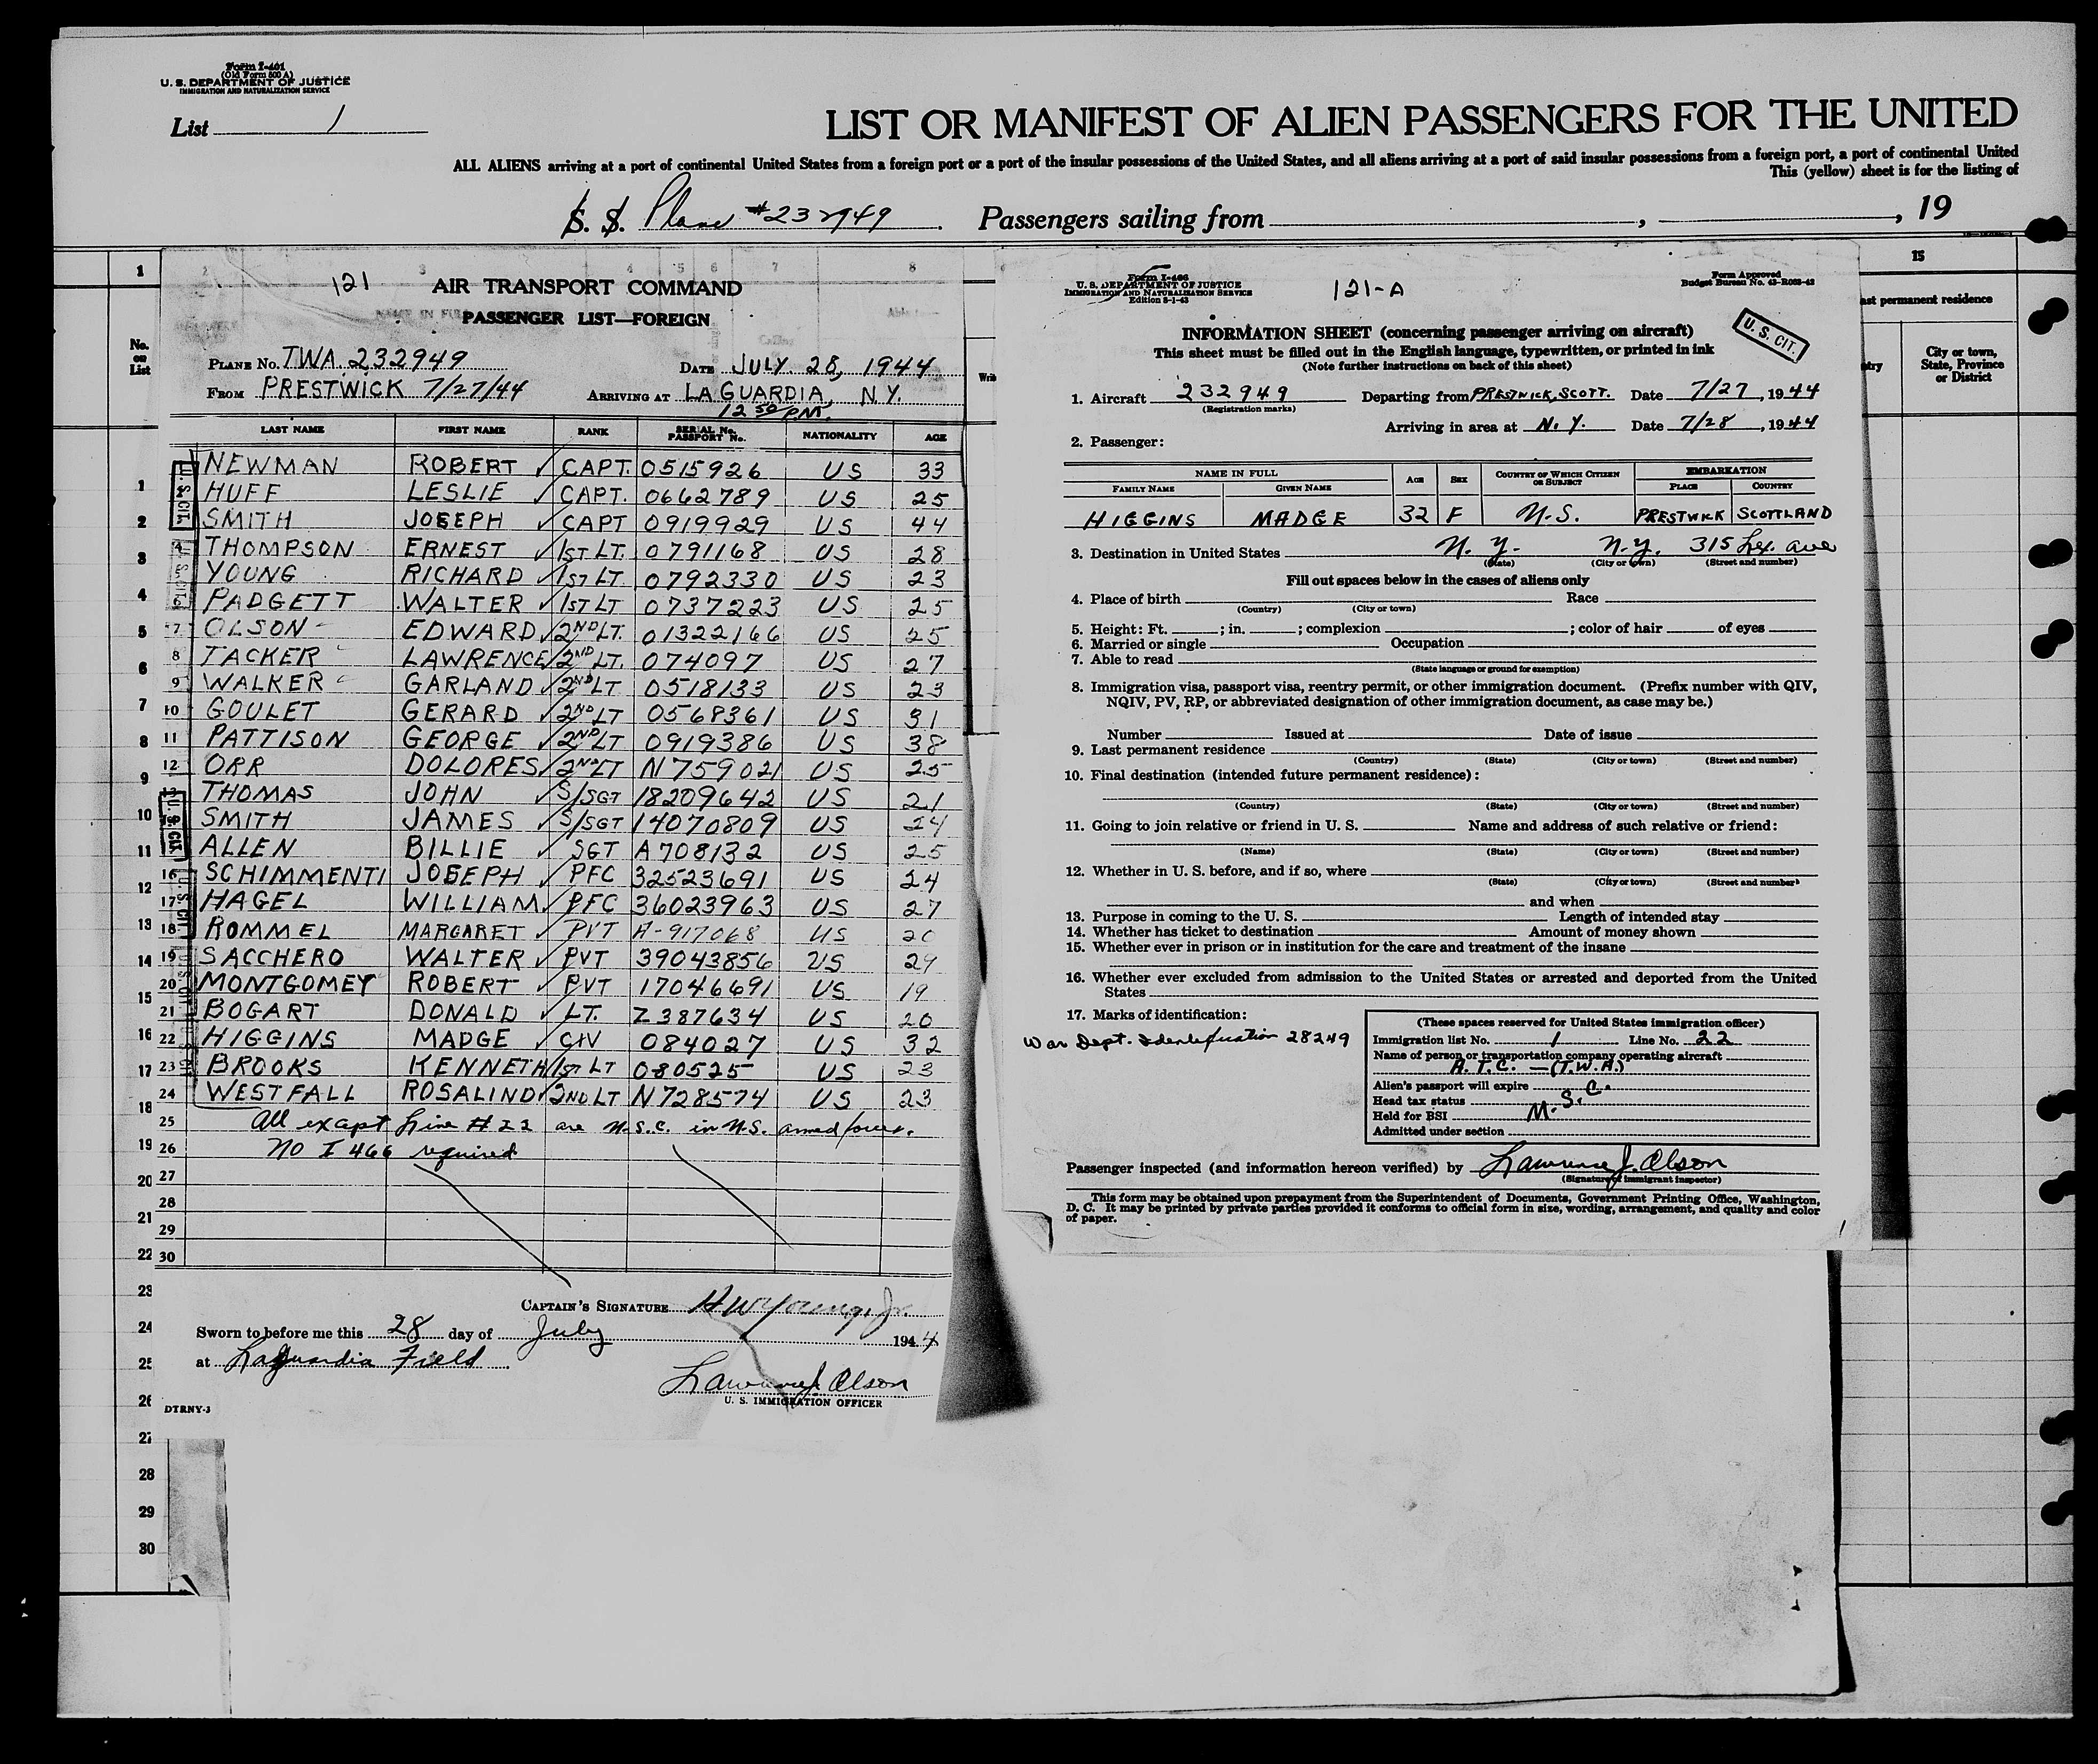 Form I-461
(Old Form 500 A)
U. S. DEPARTMENT OF JUSTICE
IMMIGRATION AND NATURALIZATION SERVICE
List 1
LIST OR MANIFEST OF ALIEN PASSENGERS FOR THE UNITED
ALL ALIENS arriving at a port of continental United States from a foreign port or a port of the insular possessions of the United States, and all aliens arriving at a port of said insular possessions from a foreign port, a port of continental United
This (yellow) sheet is for the listing of
S. S. Plane #232949. Passengers sailing from , , 19
1
No. on List
121
AIR TRANSPORT COMMAND
PASSENGER LIST—FOREIGN
PLANE NO. TWA 232949 DATE JULY 28, 1944
FROM PRESTWICK 7/27/44 ARRIVING AT LA GUARDIA, N.Y.
12 50 PM.
LAST NAME FIRST NAME RANK SERIAL No. PASSPORT No. NATIONALITY AGE
NEWMAN ROBERT ✓ CAPT. 0515926 US 33
HUFF LESLIE ✓ CAPT. 0662789 US 25
SMITH JOSEPH ✓ CAPT 0919929 US 44
THOMPSON ERNEST ✓ 1ST LT. 0791168 US 28
YOUNG RICHARD ✓ 1ST LT 0792330 US 23
PADGETT WALTER ✓ 1ST LT 0737223 US 25
7 OLSON EDWARD ✓ 2ND LT. 01322166 US 25
8 TACKER LAWRENCE ✓ 2ND LT. 074097 US 27
9 WALKER GARLAND ✓ 2ND LT 0518133 US 23
10 GOULET GERARD ✓ 2ND LT 0568361 US 31
11 PATTISON GEORGE ✓ 2ND LT 0919386 US 38
12 ORR DOLORES ✓ 2ND LT N759021 US 25
13 THOMAS JOHN ✓ S/SGT 18209642 US 21
SMITH JAMES ✓ S/SGT 14070809 US 24
ALLEN BILLIE ✓ SGT A708132 US 25
16 SCHIMMENTI JOSEPH ✓ PFC 32523691 US 24
17 HAGEL WILLIAM ✓ PFC 36023963 US 27
18 ROMMEL MARGARET ✓ PVT A-917068 US 20
19 SACCHERO WALTER ✓ PVT 39043856 US 29
20 MONTGOMEY ROBERT ✓ PVT 17046691 US 19
21 BOGART DONALD ✓ LT. Z387634 US 20
22 HIGGINS MADGE ✓ CIV 084027 US 32
23 BROOKS KENNETH 1ST LT 080525 US 23
24 WESTFALL ROSALIND ✓ 2ND LT N728574 US 23
25 All exapt Line #22 are U.S.C. in U.S. armed forces.
26 No I 466 required
27
28
29
30
CAPTAIN'S SIGNATURE H W Young, Jr.
Sworn to before me this 28 day of July 1944
at LaGuardia Field
Lawrence J. Olson
U. S. IMMIGRATION OFFICER
DTRNY-J
Form I-466
U. S. DEPARTMENT OF JUSTICE
IMMIGRATION AND NATURALIZATION SERVICE
Edition 8-1-43
121-A
Form Approved
Budget Bureau No. 43-R068-42
U. S. CIT.
INFORMATION SHEET (concerning passenger arriving on aircraft)
This sheet must be filled out in the English language, typewritten, or printed in ink
(Note further instructions on back of this sheet)
1. Aircraft 232949 Departing from PRESTWICK, SCOTT. Date 7/27, 1944
(Registration marks)
Arriving in area at N.Y. Date 7/28, 1944
2. Passenger:
NAME IN FULL AGE SEX COUNTRY OF WHICH CITIZEN OR SUBJECT EMBARKATION
FAMILY NAME GIVEN NAME PLACE COUNTRY
HIGGINS MADGE 32 F U.S. PRESTWICK SCOTTLAND
3. Destination in United States N.Y. N.Y. 315 Lex. ave
(State) (City or town) (Street and number)
Fill out spaces below in the cases of aliens only
4. Place of birth Race
(Country) (City or town)
5. Height: Ft. ; in. ; complexion ; color of hair of eyes
6. Married or single Occupation
7. Able to read
(State language or ground for exemption)
8. Immigration visa, passport visa, reentry permit, or other immigration document. (Prefix number with QIV,
NQIV, PV, RP, or abbreviated designation of other immigration document, as case may be.)
Number Issued at Date of issue
9. Last permanent residence
(Country) (State) (City or town) (Street and number)
10. Final destination (intended future permanent residence):
(Country) (State) (City or town) (Street and number)
11. Going to join relative or friend in U. S. Name and address of such relative or friend:
(Name) (State) (City or town) (Street and number)
12. Whether in U. S. before, and if so, where
(State) (City or town) (Street and number)
and when
13. Purpose in coming to the U. S. Length of intended stay
14. Whether has ticket to destination Amount of money shown
15. Whether ever in prison or in institution for the care and treatment of the insane
16. Whether ever excluded from admission to the United States or arrested and deported from the United
States
17. Marks of identification:
War Dept. Identification 28249
(These spaces reserved for United States immigration officer)
Immigration list No. 1 Line No. 22
Name of person or transportation company operating aircraft
A.T.C. — (T.W.A.)
Alien's passport will expire
Head tax status U.S.C.
Held for BSI
Admitted under section
Passenger inspected (and information hereon verified) by Lawrence J. Olson
(Signature of immigrant inspector)
This form may be obtained upon prepayment from the Superintendent of Documents, Government Printing Office, Washington,
D. C. It may be printed by private parties provided it conforms to official form in size, wording, arrangement, and quality and color
of paper.
15
ast permanent residence
City or town, State, Province or District
1
2
3
4
5
6
7
8
9
10
11
12
13
14
15
16
17
18
19
20
21
22
23
24
25
26
27
28
29
30